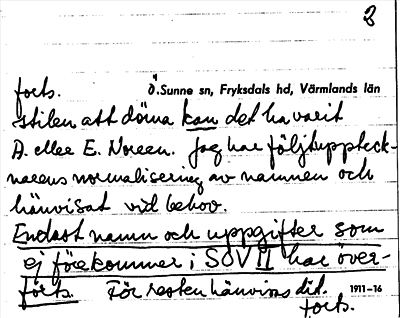 3
forts. Ö.Sunne sn, Fryksdals hd, Värmlands län
stilen att döma kan det ha varit
A. eller E. Noreen. Jag har följt uppteck-
narens normalisering av namnen och
hänvisat vid behov.
Endast namn och uppgifter som
ej förekommer i SOV II har över-
förts. För resten hänvisas dit. 1911-16
forts.